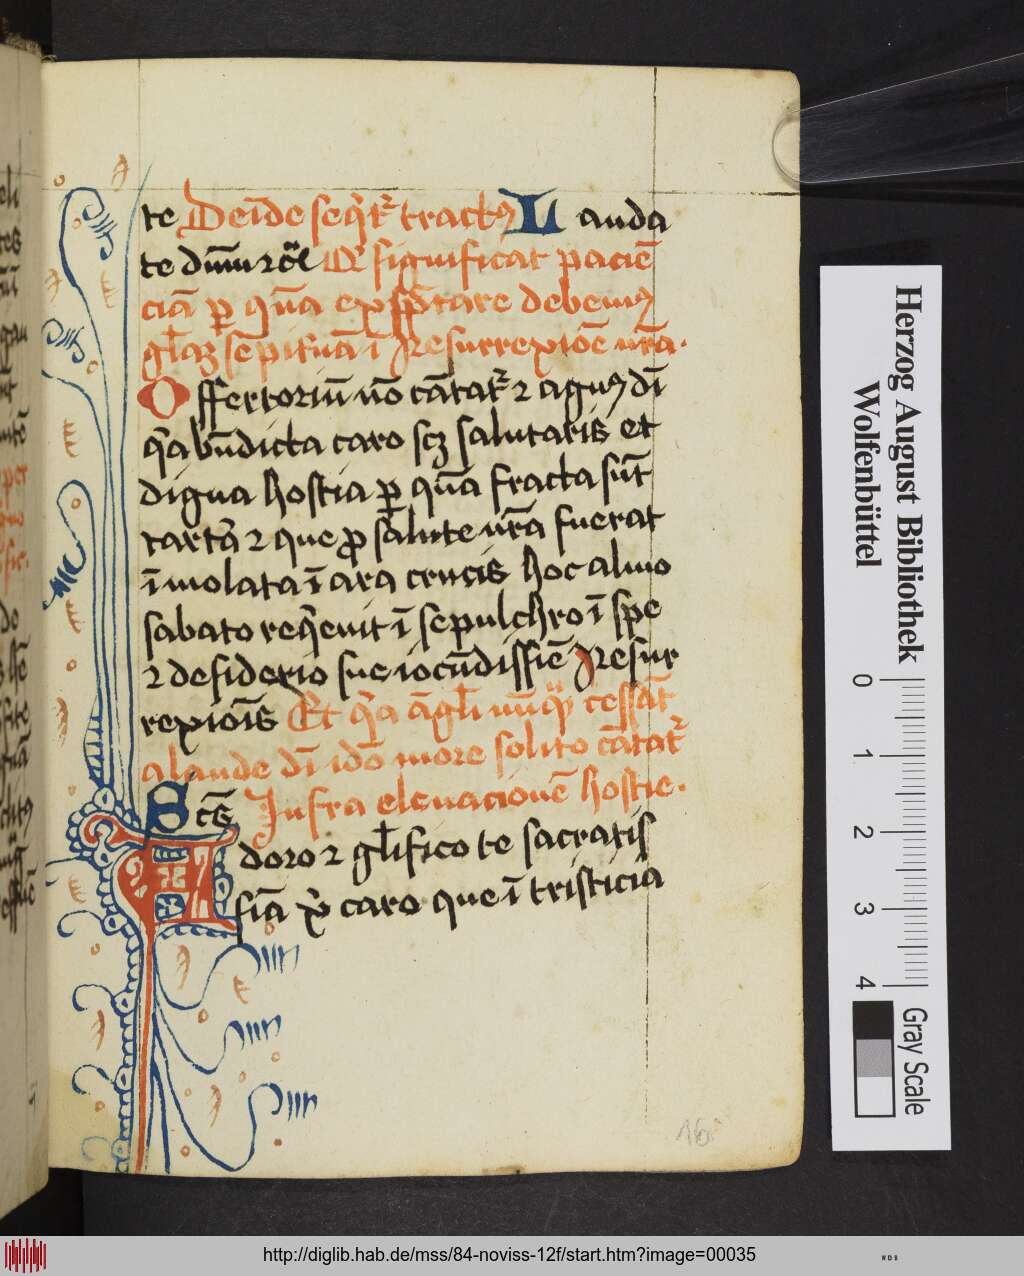 te Deīde seq̄t᷑ tractꝰ Lauda
te dn̄m ⁊cͣ Qͥ significat paciē
ciā ꝑ quā exspectare debemꝰ
gl̄aꝫ sēpit᷑nā ī Resurrexiōe nr̄a.
Offertoriū nō cātat᷑ ⁊ agnꝰ dī
qͥa bn̄dicta caro scꝫ salutaris et
digna hostia ꝑ quā fracta sūt
tartͣa ⁊ que ꝓ salute nr̄a fuerat
īmolata ī ara crucis hoc almo
sabato reqͥeuit ī sepulchro ī spe
⁊ desiderio sue iocūdissīe Resur
rexiōis Et qͥa āgl̄i nūqͣ cessāt
a laude dī idō more solito cātat᷑
Sctūs Infra eleuacionē hostie.
Adoro ⁊ gl̄ifico te sacratis
sīa xp̄i caro que ī tristicia
16
Herzog August Bibliothek
Wolfenbüttel
0 1 2 3 4
Gray Scale
http://diglib.hab.de/mss/84-noviss-12f/start.htm?image=00035